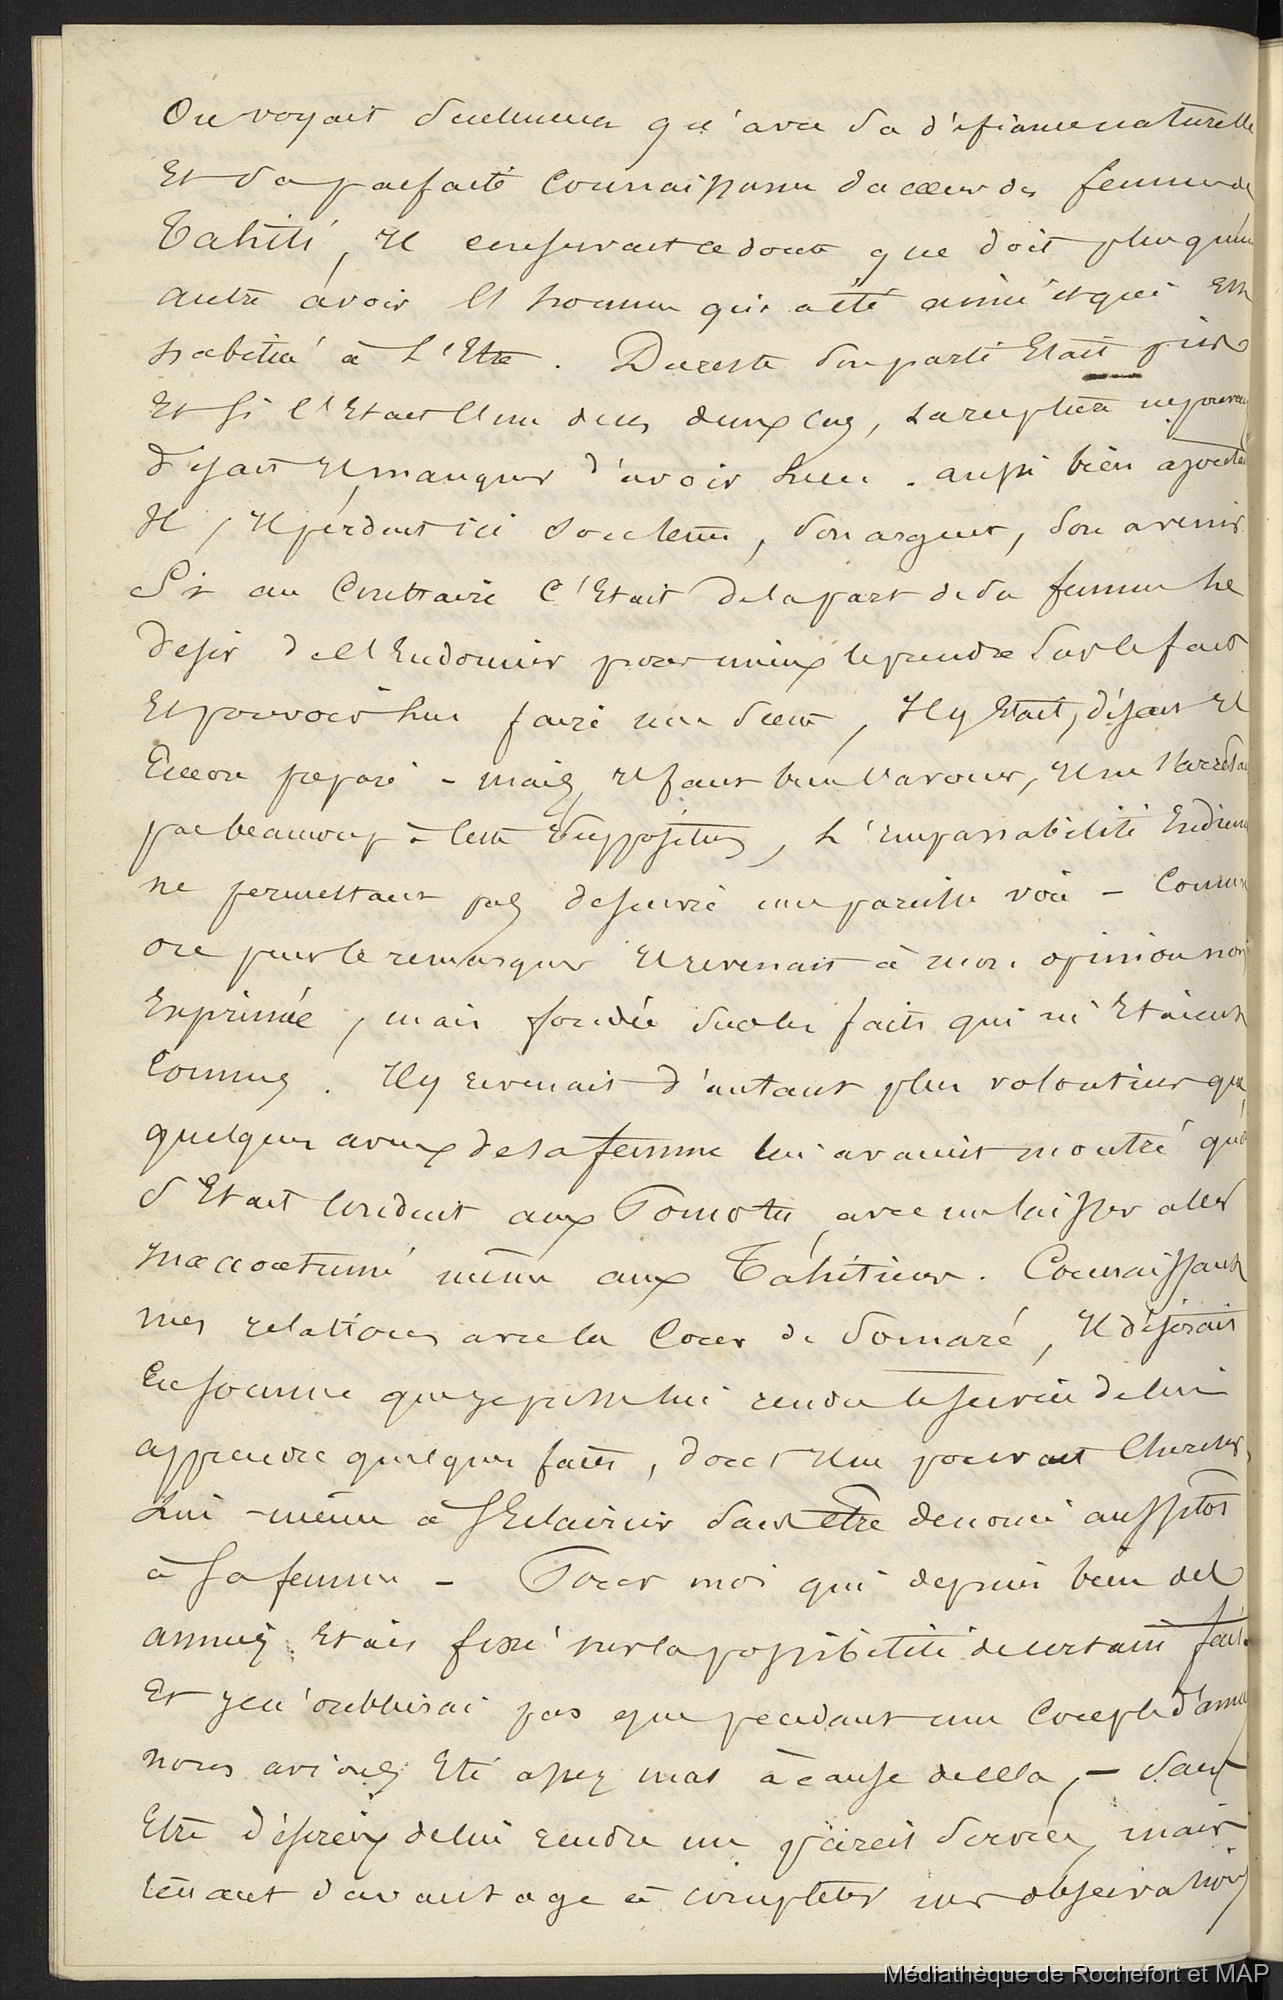 On voyait seulement qu'avec sa défiance naturelle
Et sa parfaite connaissance du coeur des femmes de
Tahiti, Il conservait ce doute que doit plus qu'un
autre avoir l'homme qui a été aimé et qui Est
habitué à l'Etre. Dureste son parti Etait pris
Et si c'Etait l'un des deux cas, la rupture ne pouvait
disait Il manquer d'avoir lieu. aussi bien ajoutait
Il, Il perdait ici son tems, son argent, son avenir.
Si au Contraire C'Etait de la part de sa femme le
desir de l'Endormir pour mieux le prendre sur le fait
Et pouvoir lui faire une scene, Il y Etait, disait Il
Encore preparé - mais, Il faut bien l'avouer, Il ne s'arrêtait
pas beaucoup à cette supposition, l'impassabilité Indienne
ne permettant pas de suivre une pareille voie - Comme
on peut le remarquer Il revenait à mon opinion non
Exprimée, mais fondée sur les faits qui m'Etaient
Connus. Il y revenait d'autant plus volontiers que
quelques aveux de sa femme lui avaient montré qu'on
s'Etait conduit aux Pomotu avec un laisser aller
Inaccoutumé même aux Tahitiens. Connaissant
mes relations avec la Cour de Pomaré, Il désirait
En somme que je pusse lui rendre le service de lui
apprendre quelques faits, dont Il ne pouvait Chercher
Lui-même à s'Eclaircir sans être denoncé aussitôt
à sa femme - Pour moi qui depuis bien des
années Etais fixé sur la possibilité de certains faits
Et je n'oublierai pas que pendant un Couple d'années
nous avions Eté assez mal à cause de cela, - sans
Etre désireux de lui rendre un pareil service, mais
tenant davantage à completer mes observations